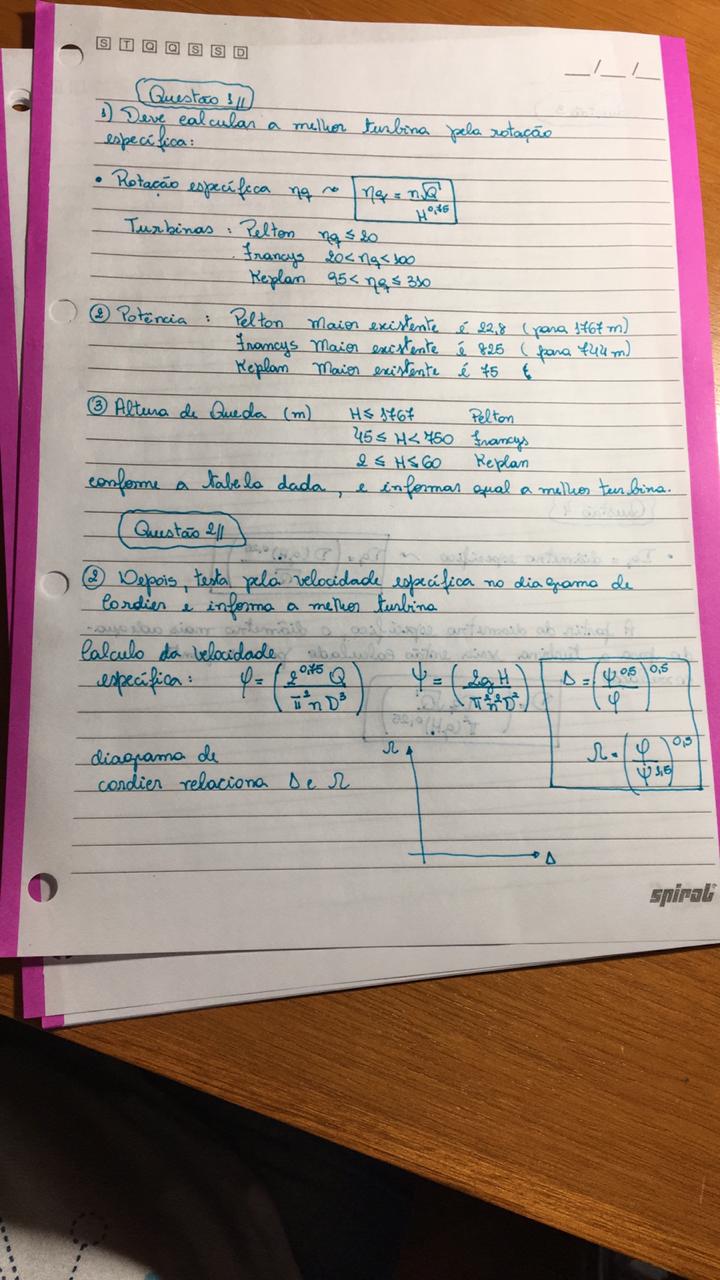 S T Q Q S S D
__/__/__
Questão 1//
1) Deve calcular a melhor turbina pela rotação
específica:
• Rotação específica nq ~ nq = n√Q / H^0,75
Turbinas : Pelton nq ≤ 20
Francys 20 < nq < 100
Keplan 95 < nq ≤ 310
② Potência : Pelton Maior existente é 22,8 (para 1767 m)
Francys Maior existente é 825 (para 744 m)
Keplan Maior existente é 75
③ Altura de Queda (m) H ≤ 1767 Pelton
45 ≤ H < 750 Francys
2 ≤ H ≤ 60 Keplan
conforme a tabela dada, e informar qual a melhor turbina.
Questão 2//
② Depois, testa pela velocidade específica no diagrama de
Cordier e informa a melhor turbina
Calculo da velocidade
específica: φ = (2^0,75 Q / π² n D³) ψ = (2gH / π² n² D²) Δ = (ψ^0,5 / φ)^0,5
Ω = (φ / ψ^1,5)^0,5
diagrama de
cordier relaciona Δ e Ω
Ω
Δ
spiral